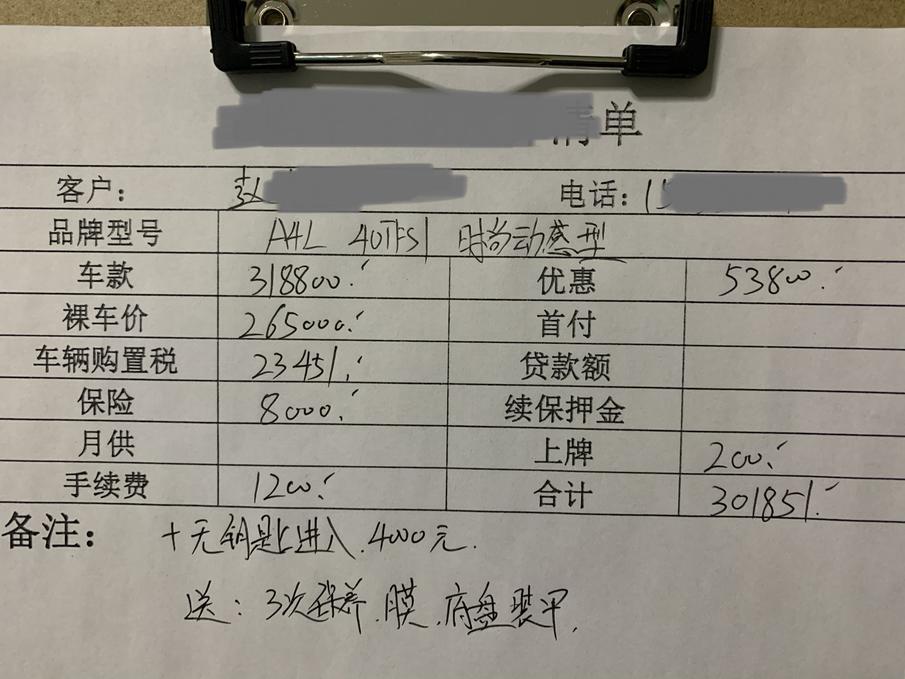 清单
客户： 电话：
品牌型号 A4L 40TFSI 时尚动感型
车款 318800 优惠 53800
裸车价 265000 首付
车辆购置税 23451 贷款额
保险 8000 续保押金
月供 上牌 200
手续费 1200 合计 301851
备注： +无钥匙进入.4000元.
送：3次保养.膜.底盘装甲.